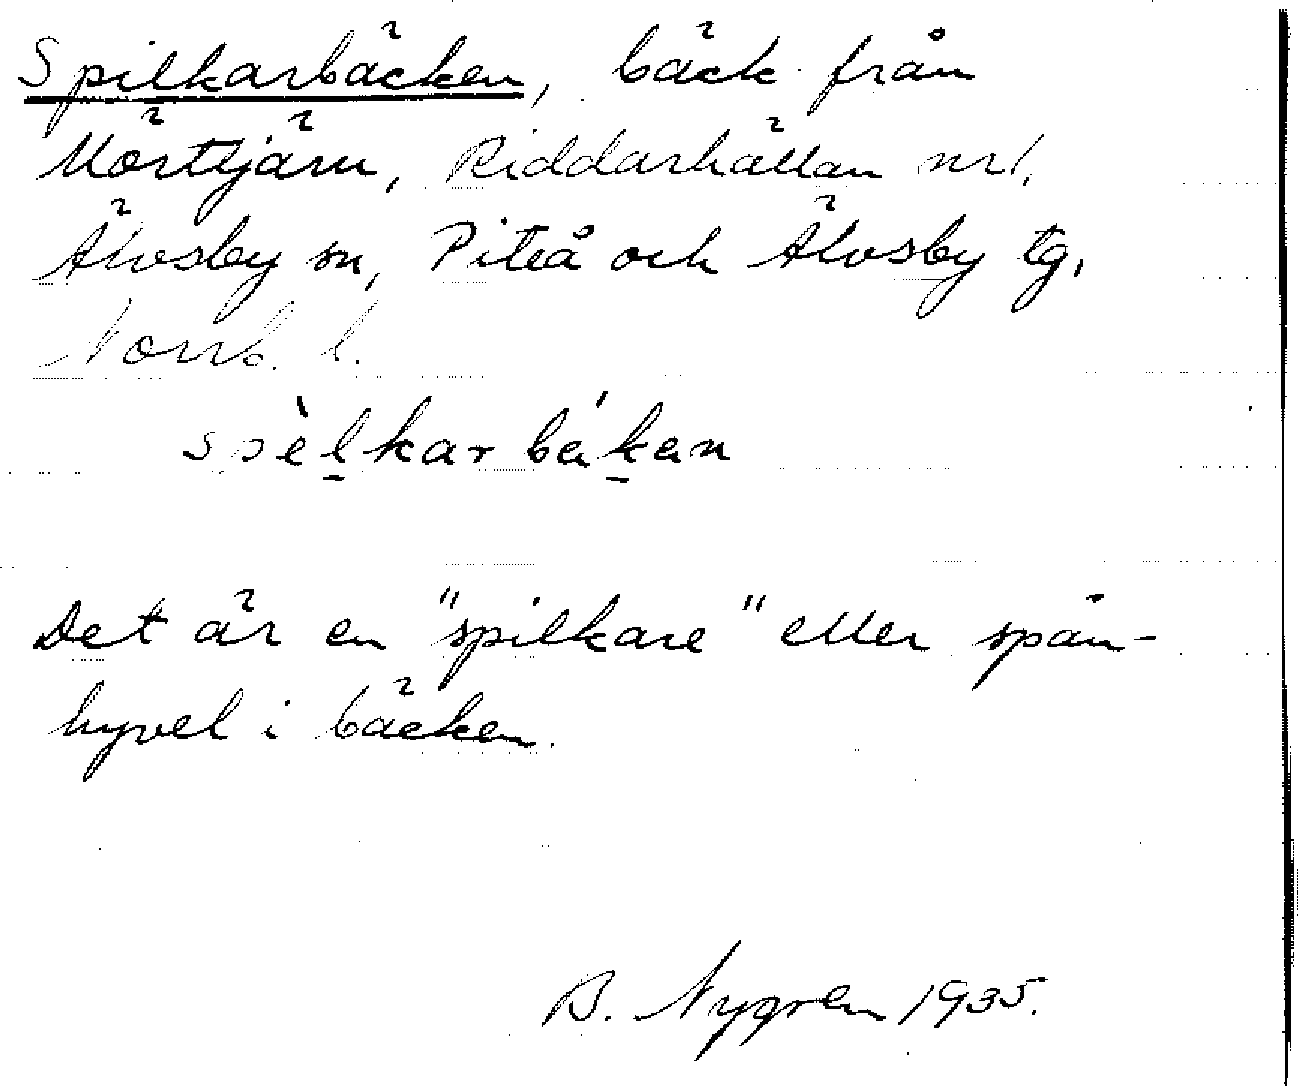 Spilkarbäcken, bäck från
Mörttjärn, Riddarhällan nr 1,
Älvsby sn, Piteå och Älvsby tg,
Norrb. l.
Det är en "spilkare" eller spån-
hyvel i bäcken.
B. Nygren 1935.